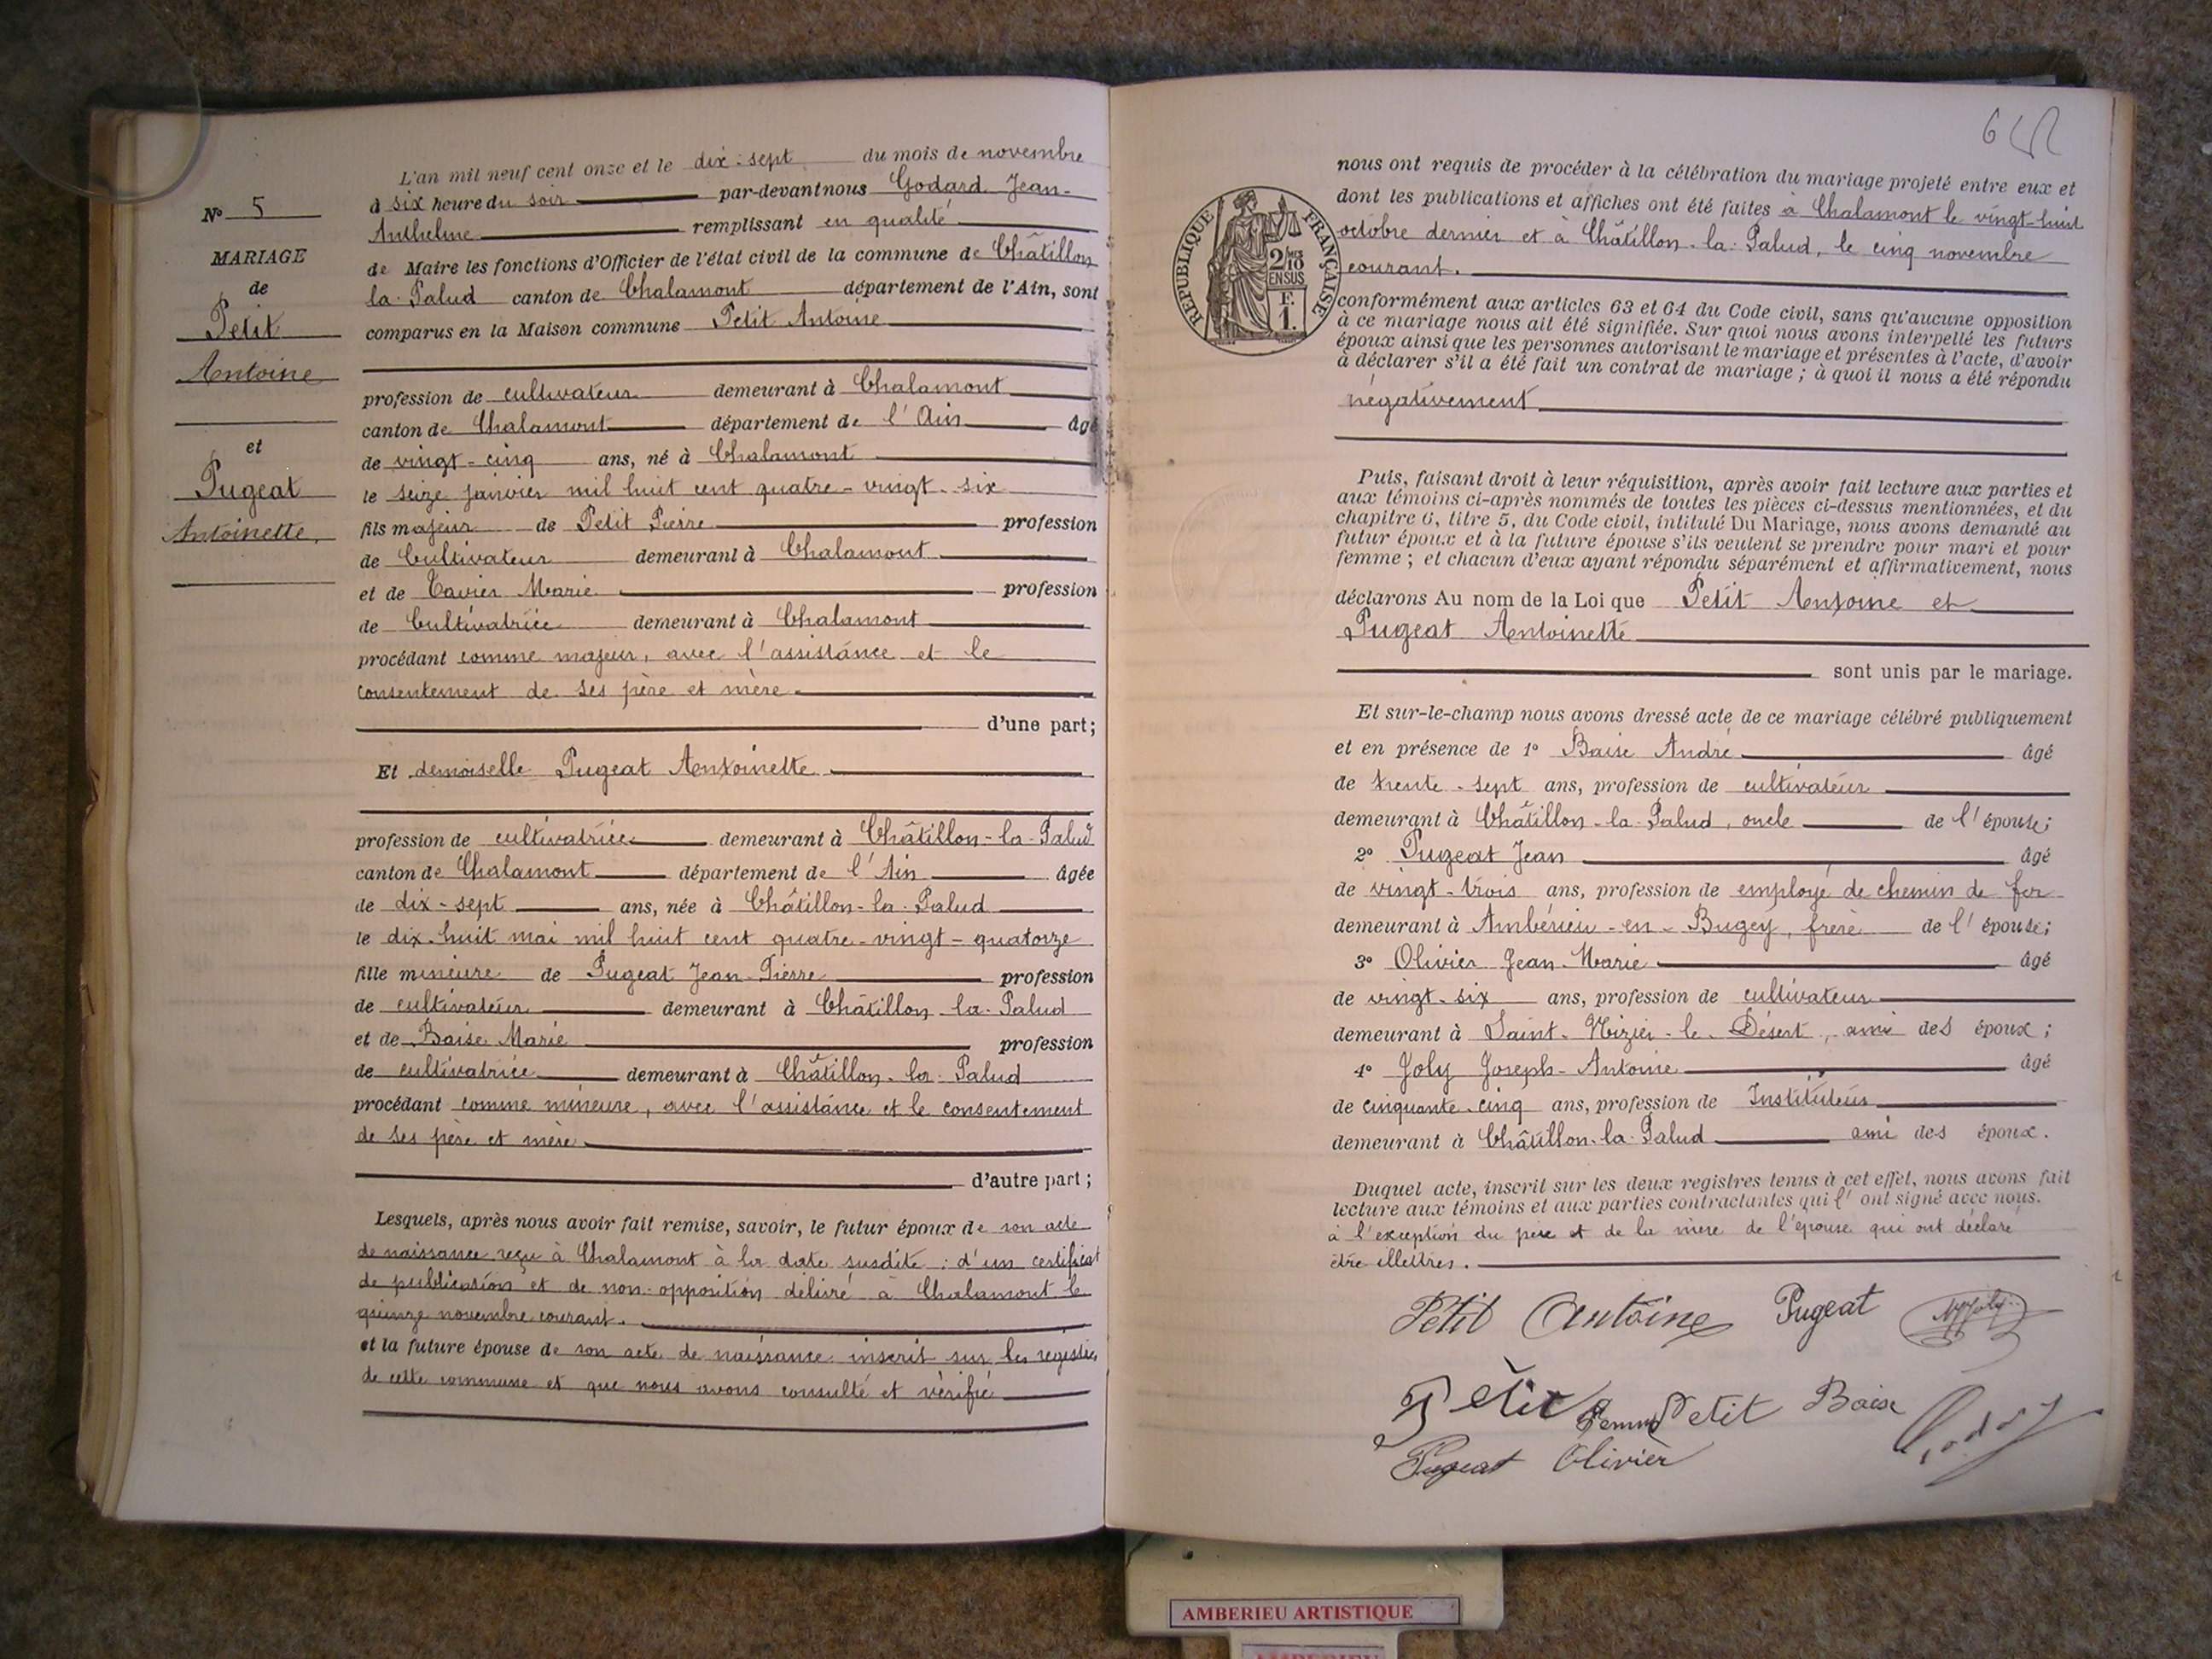 N° 5
MARIAGE
de
Petit
Antoine
et
Pugeat
Antoinette,
L'an mil neuf cent onze et le dix-sept du mois de novembre
à six heure du soir par-devant nous Godard Jean-
Anthelme remplissant en qualité
de Maire les fonctions d'Officier de l'état civil de la commune de Châtillon
la-Palud canton de Chalamont département de l'Ain, sont
comparus en la Maison commune Petit Antoine
profession de cultivateur demeurant à Chalamont
canton de Chalamont département de l'Ain âgé
de vingt-cinq ans, né à Chalamont
le seize janvier mil huit cent quatre-vingt-six
fils majeur de Petit Pierre profession
de Cultivateur demeurant à Chalamont
et de Tavier Marie profession
de Cultivatrice demeurant à Chalamont
procédant comme majeur, avec l'assistance et le
consentement de ses père et mère
d'une part;
Et demoiselle Pugeat Antoinette
profession de cultivatrice demeurant à Châtillon-la-Palud
canton de Chalamont département de l'Ain âgée
de dix-sept ans, née à Châtillon-la-Palud
le dix-huit mai mil huit cent quatre-vingt-quatorze
fille mineure de Pugeat Jean-Pierre profession
de cultivateur demeurant à Châtillon-la-Palud
et de Baise Marie profession
de cultivatrice demeurant à Châtillon-la-Palud
procédant comme mineure, avec l'assistance et le consentement
de ses père et mère
d'autre part;
Lesquels, après nous avoir fait remise, savoir, le futur époux de son acte
de naissance reçu à Chalamont à la date susdite : d'un certificat
de publication et de non-opposition délivré à Chalamont le
quinze novembre courant.
et la future épouse de son acte de naissance inscrit sur les registres
de cette commune et que nous avons consulté et vérifié
RÉPUBLIQUE FRANÇAISE
2/10
EN SUS
F.
1.
nous ont requis de procéder à la célébration du mariage projeté entre eux et
dont les publications et affiches ont été faites à Chalamont le vingt-huit
octobre dernier et à Châtillon-la-Palud, le cinq novembre
courant.
conformément aux articles 63 et 64 du Code civil, sans qu'aucune opposition
à ce mariage nous ait été signifiée. Sur quoi nous avons interpellé les futurs
époux ainsi que les personnes autorisant le mariage et présentes à l'acte, d'avoir
à déclarer s'il a été fait un contrat de mariage ; à quoi il nous a été répondu
négativement
Puis, faisant droit à leur réquisition, après avoir fait lecture aux parties et
aux témoins ci-après nommés de toutes les pièces ci-dessus mentionnées, et du
chapitre 6, titre 5, du Code civil, intitulé Du Mariage, nous avons demandé au
futur époux et à la future épouse s'ils veulent se prendre pour mari et pour
femme ; et chacun d'eux ayant répondu séparément et affirmativement, nous
déclarons Au nom de la Loi que Petit Antoine et
Pugeat Antoinette
sont unis par le mariage.
Et sur-le-champ nous avons dressé acte de ce mariage célébré publiquement
et en présence de 1° Baise André âgé
de trente-sept ans, profession de cultivateur
demeurant à Châtillon-la-Palud, oncle de l'épouse;
2° Pugeat Jean âgé
de vingt-trois ans, profession de employé de chemin de fer
demeurant à Ambérieu-en-Bugey, frère de l'épouse;
3° Olivier Jean-Marie âgé
de vingt-six ans, profession de cultivateur
demeurant à Saint-Nizier-le-Désert, ami des époux;
4° Joly Joseph-Antoine âgé
de cinquante-cinq ans, profession de Instituteur
demeurant à Châtillon-la-Palud ami des époux.
Duquel acte, inscrit sur les deux registres tenus à cet effet, nous avons fait
lecture aux témoins et aux parties contractantes qui l'ont signé avec nous.
à l'exception du père et de la mère de l'épouse qui ont déclaré
être illettrés.
Petit Antoine Pugeat Joly
Petit Femme Petit Baise
Pugeat Olivier Godard
AMBERIEU ARTISTIQUE
AMBERIEU